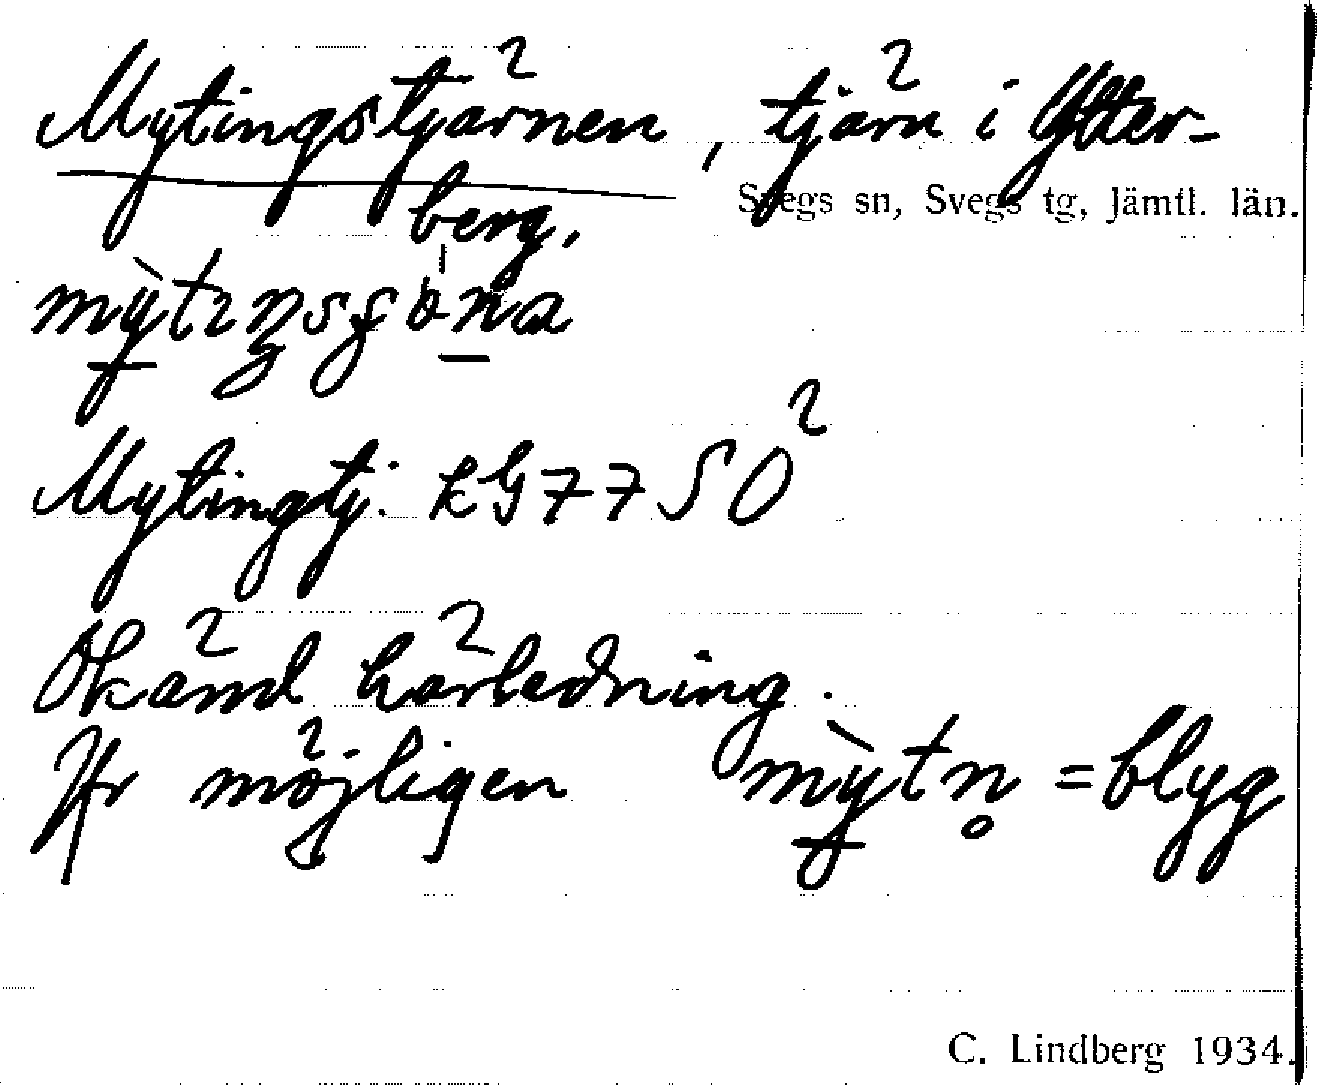 Mytingstjärnen, tjärn i Ytter-
berg. Svegs sn, Svegs tg, Jämtl. län.
Mytingtj. kG77SO
Okänd härledning.
Jfr möjligen mỳtn̥ = blyg
C. Lindberg 1934.